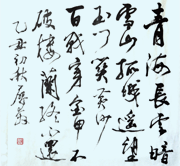 青海長雲暗
雪山孤城遥望
玉门关黄沙
百戰穿金甲不
破樓蘭终不還
乙丑初秋